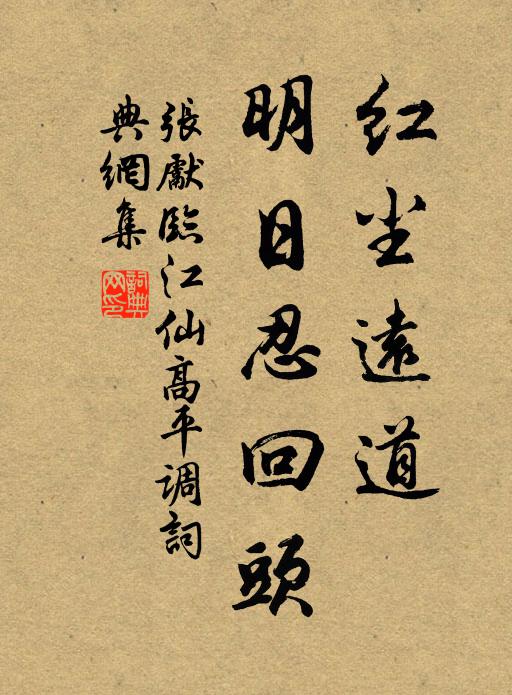 红尘遠道
明日忍回頭
張獻臨江仙高平调詞
典網集
詞典网印